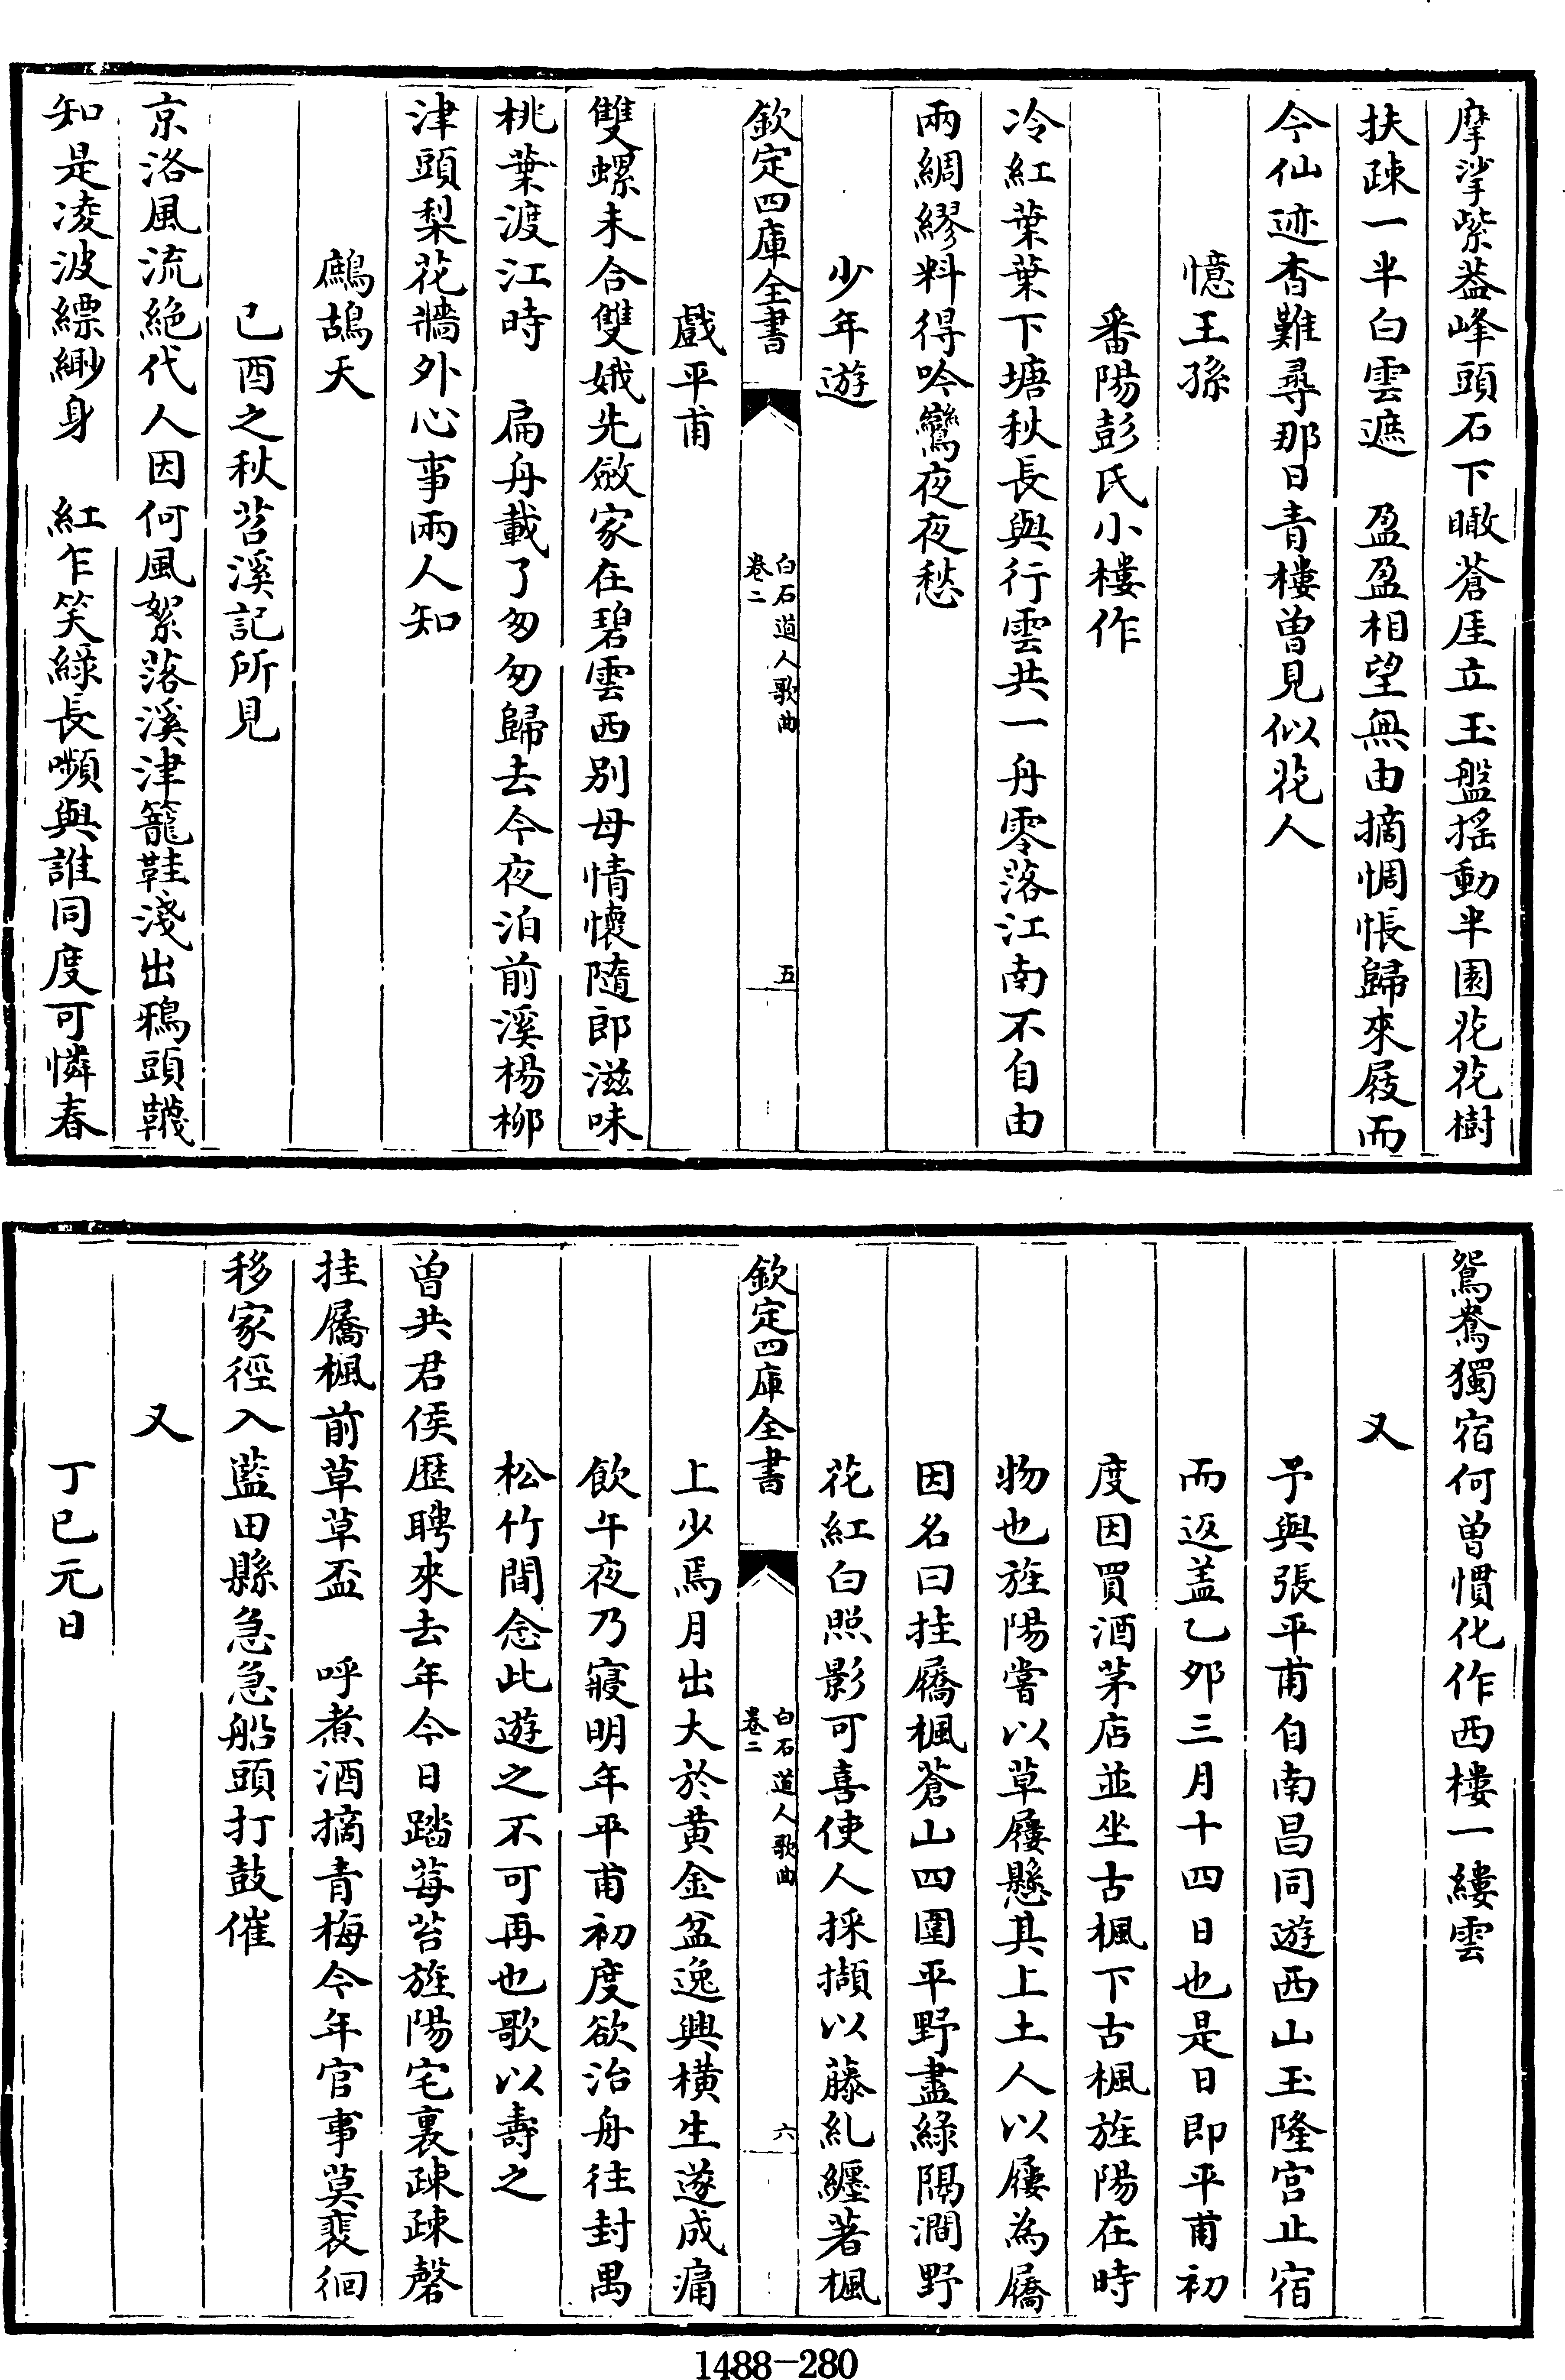 摩挲紫葢峰頭石下瞰蒼厓立玉盤揺動半園花花樹
扶疎一半白雲遮　盈盈相望無由摘惆悵歸來屐而
今仙迹杳難尋那日青樓曽見似花人
憶王孫
番陽彭氏小樓作
冷紅葉葉下塘秋長與行雲共一舟零落江南不自由
兩綢繆料得吟鸞夜夜愁
少年遊
欽定四庫全書
白石道人歌曲
卷二
五
戲平甫
雙螺未合雙娥先斂家在碧雲西别母情懷隨郎滋味
桃葉渡江時　扁舟載了匆匆歸去今夜泊前溪楊柳
津頭梨花牆外心事兩人知
鷓鴣天
己酉之秋苕溪記所見
京洛風流絶代人因何風絮落溪津籠鞋淺出鴉頭韈
知是凌波縹緲身　紅乍笑緑長嚬與誰同度可憐春
鴛鴦獨宿何曽慣化作西樓一縷雲
又
予與張平甫自南昌同遊西山玉隆宫止宿
而返盖乙夘三月十四日也是日即平甫初
度因買酒茅店並坐古楓下古楓旌陽在時
物也旌陽嘗以草屨懸其上土人以屨為屩
因名曰挂屩楓蒼山四圍平野盡緑隔澗野
花紅白照影可喜使人採擷以藤糺纒著楓
欽定四庫全書
白石道人歌曲
卷二
六
上少焉月出大於黄金盆逸興横生遂成痛
飲午夜乃寢明年平甫初度欲治舟往封禺
松竹間念此遊之不可再也歌以壽之
曽共君侯歴聘來去年今日踏莓苔旌陽宅裏疎疎磬
挂屩楓前草草盃　呼煮酒摘青梅今年官事莫裵徊
移家徑入藍田縣急急船頭打鼓催
又
丁巳元日
1488—280